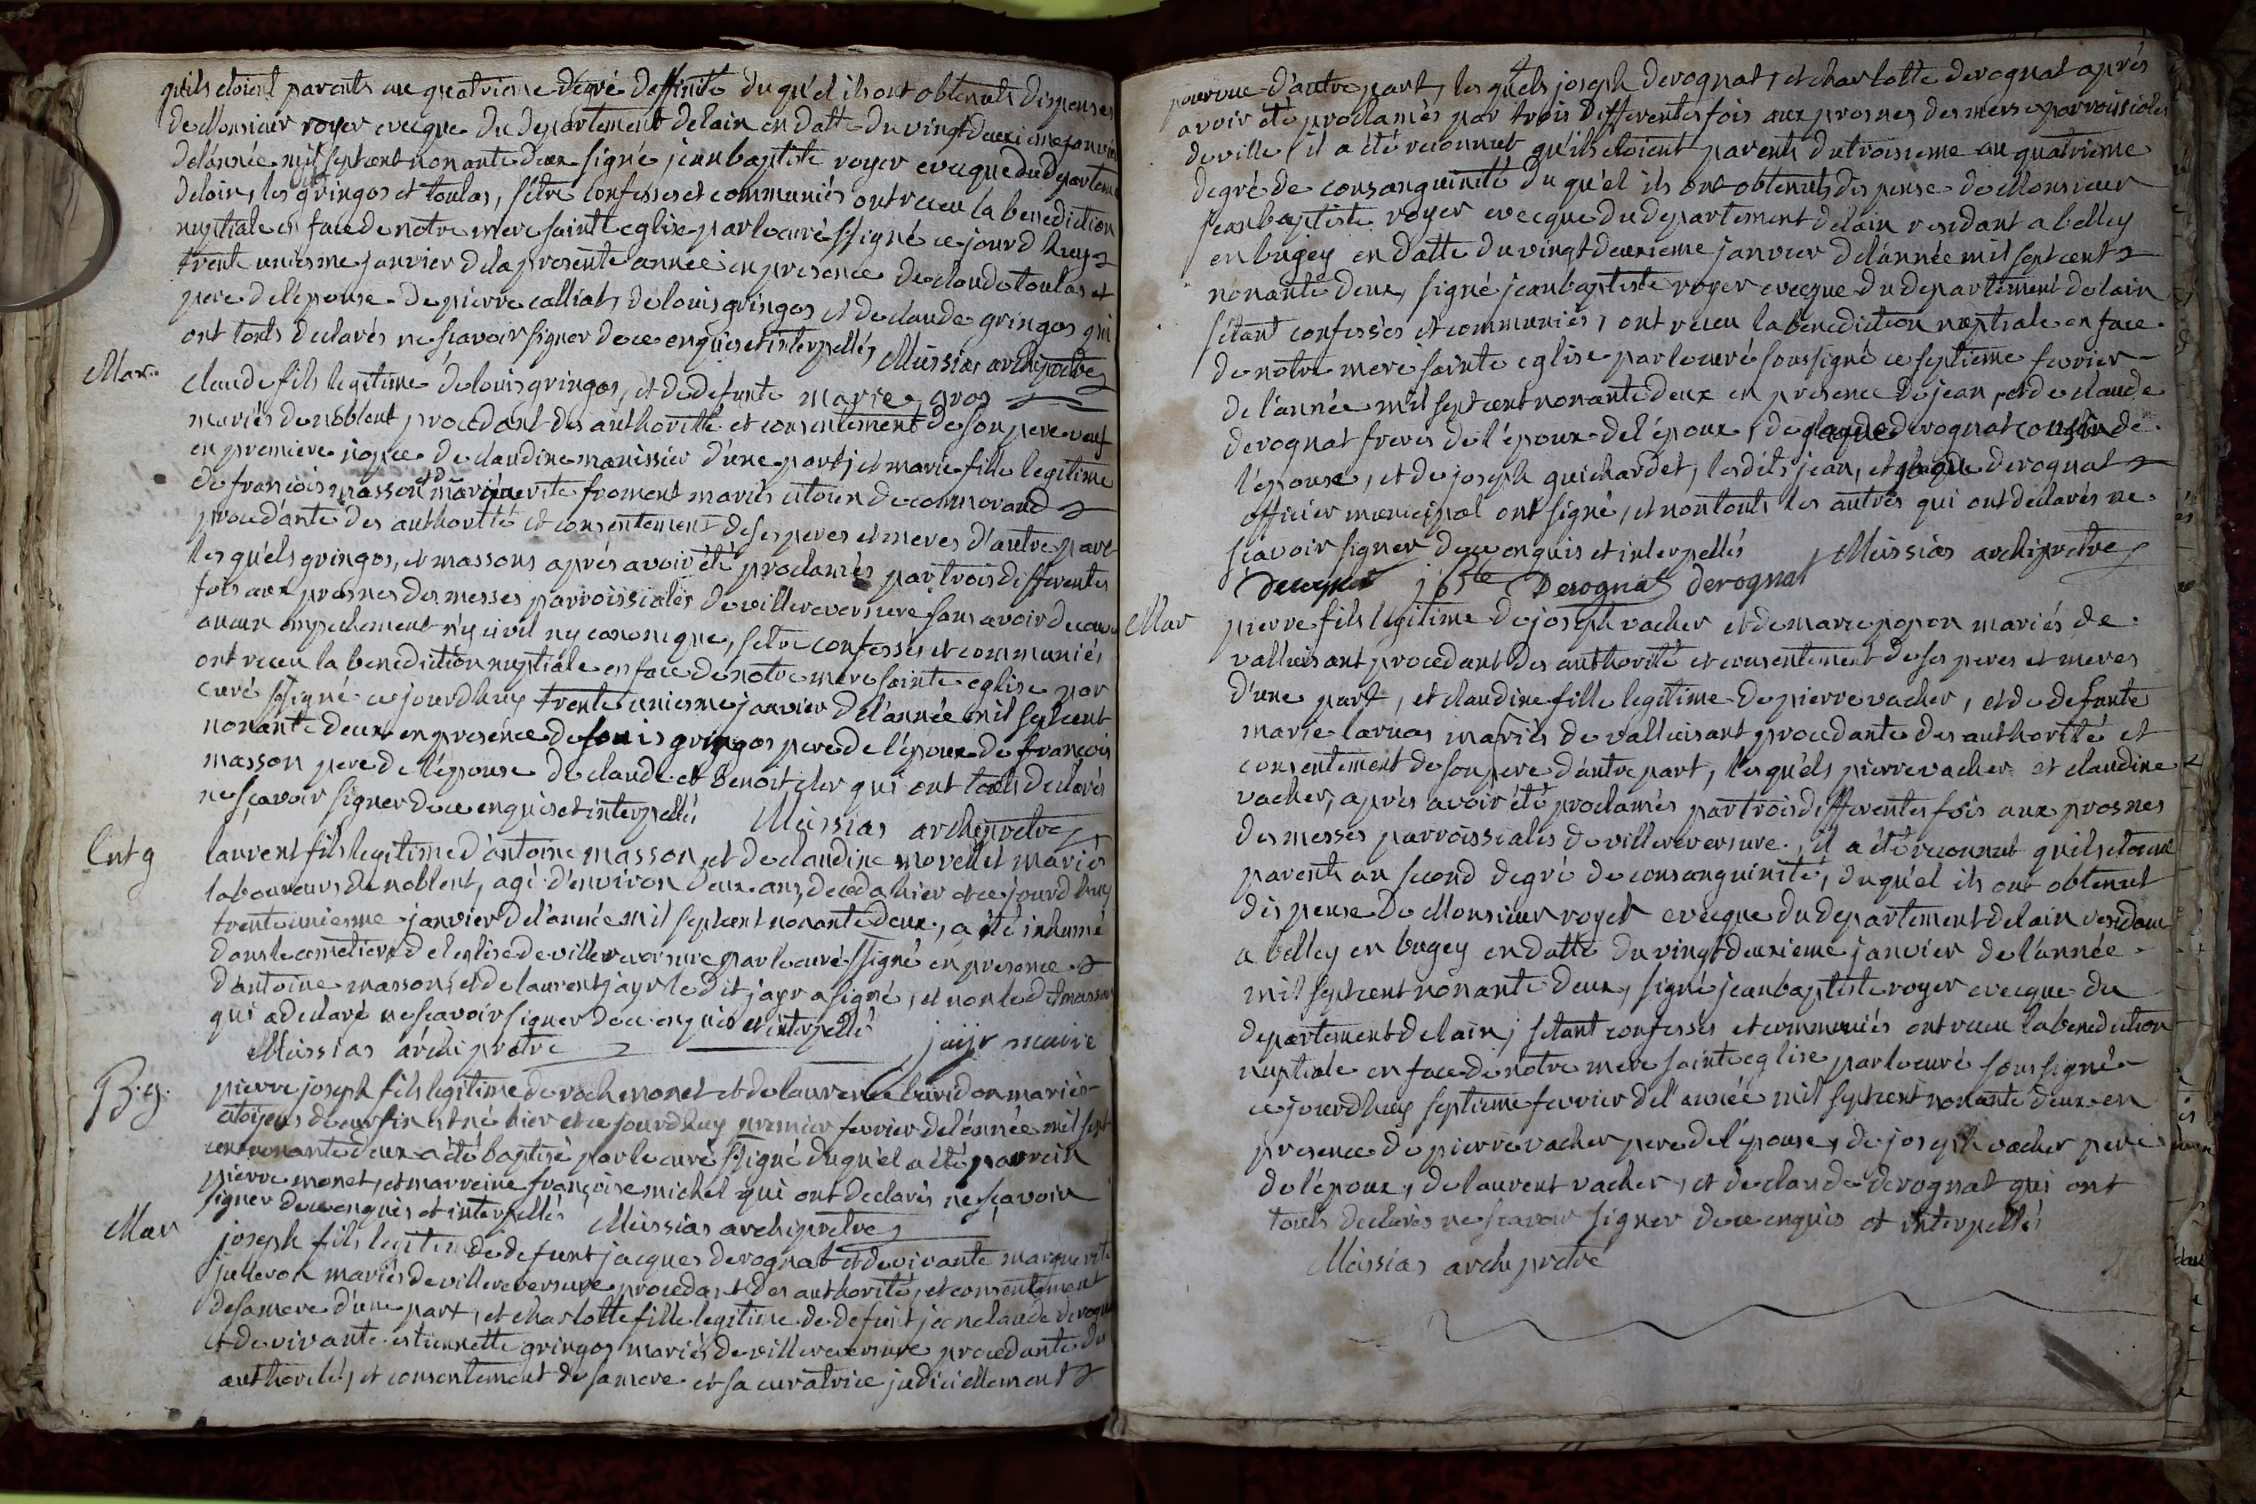 qu'ils etoient parents au quatrieme degré d'affinité du qu'el ils ont obtenuts dispenses
de Monsieur royer evecque du departement delain en datte du vingt deuxieme janvier
de lánnée mil sept cent nonante deux signé jean baptiste royer evecque du departem
delain, les gringos et toulas, s'étre confessés et communiés ont receu la benediction
nuptiale en face de notre mere sainte eglise par le curé ssigné ce jourd'huy
trente uniesme janvier de la presente année en presence de claude toulas et
pere de l'épouse de pierre calliat, de louis gringos et de claude gringos qui
ont touts declarés ne scavoir signer de ce enquis et interpellés Meissias archiprétre
Mar.
claude fils legitime de louis gringos, et de defunte marie gros
mariés de noblent procedant des authorité et consentement de son pere veuf
en premiere nopce de claudine manissier d'une part, et marie fille legitime
de francois masson et de marguerite froment mariés citoien de commorand
procedante des authorité et consentement de ses peres et meres d'autre part
les qu'els gringos, et massons aprés avoir été proclamés par trois differentes
fois aux prosnes des messes parroissiales de villereversure sans avoir decou
aucun empechement n'y civil ny canonique, s'etre confessés et communiés
ont receu la benediction nuptiale en face de notre mere sainte eglise par
curé ssigné ce jourd'huy trente uniesme janvier de l'année mil sept cent
nonante deux en presence de louis gringos pere de l'époux de francois
masson pere de l'épouse de claude et benoit cler qui ont touts declarés
ne scavoir signer de ce enquis et interpellé Meissias archiprétre
Ent g
laurent fils legitime d'antoine masson et de claudine morellet mariés
laboureurs de noblent, agé d'environ deux ans, deceda hier et ce jourd'huy
trente uniesme janvier de l'année mil sept cent nonante deux, a été inhumé
dans le cemetiere de l'eglise de villereversure par le curé ssigné en presence
d'antoine masson, et de laurent jayr le dit jayr a signé, et non le dit masson
qui a declaré ne scavoir signer de ce enquis et interpellé
Meissias archiprétre jayr maire
B. g.
pierre joseph fils legitime de roch monet et de laurence buridon mariés
citoyens de curfin est né hier et ce jourd'huy premier fevrier de lánnée mil sept
cent nonante deux a été baptisé par le curé ssigné du qu'el a été parrein
pierre monet, et marreine françoise michel qui ont declarés ne scavoir
signer de ce enquis et interpellés Meissias archiprétre
Mar
joseph fils legitime de defunt jacques derognat et de vivante marguerite
julleron mariés de villereversure procedant des authorité, et consentement
de sa mere d'une part, et charlotte fille legitime de defunt jean claude derogna
et de vivante estiennette gringos mariés de villereversure procedante des
authorité, et consentement de sa mere et sa curatrice judiciellement
pourvue d'autre part, les quels joseph derognat, et charlotte derognat aprés
avoir été proclamés par trois differentes fois aux prosnes des messes parroissiales
de ville, il a été reconnut qu'ils etoient parents du troisieme au quatrieme
degré de consanguinité du qu'el ils ont obtenuts dispense de Monsieur
jean baptiste royer evecque du departement delain residant a belley
en bugey en datte du vingt deuxieme janvier de lánnée mil sept cent
nonante deux, signé jean baptiste royer evecque du departement delain
s'étant confessés et communiés, ont receu la benediction nuptiale en face
de notre mere sainte eglise par le curé soussigné ce septieme fevrier
de l'année mil sept cent nonante deux en presence de jean, et de claude
derognat freres de l'époux de l'époux, de derognat cousin de
l'épouse, et de joseph guichardet, lesdits jean, et derognat
officier municipal ont signé, et non touts les autres qui ont declarés ne
scavoir signer de ce enquis et interpellés Meissias archiprétre
Derognat Derognat
Mar
pierre fils legitime de joseph vacher et de marie popon mariés de
valluisant procedant des authorité et consentement de ses peres et meres
d'une part, et claudine fille legitime de pierre vacher, et de defunte
marie laruas mariés de valluisant procedante des authorité et
consentement de son pere d'autre part, les qu'els pierre vacher et claudine
vacher, aprés avoir été proclamés par trois differentes fois aux prosnes
des messes parroissiales de villereversure, il a été reconnut quils etoient
parents au second degré de consanguinité, du qu'el ils ont obtenut
dispense de Monsieur royer evecque du departement delain residant
a belley en bugey en datte du vingt deuxieme janvier de lánnée
mil sept cent nonante deux, signé jean baptiste royer evecque du
departement delain, s'étant confessés et communiés ont receu la benediction
nuptiale en face de notre mere sainte eglise par le curé soussigné
ce jourd'huy septieme fevrier de l'année mil sept cent nonante deux en
presence de pierre vacher pere de l'épouse, de joseph vacher pere
de l'époux, de laurent vacher, et de claude derognat qui ont
touts declarés ne scavoir signer de ce enquis et interpellés
Meissias archiprétre